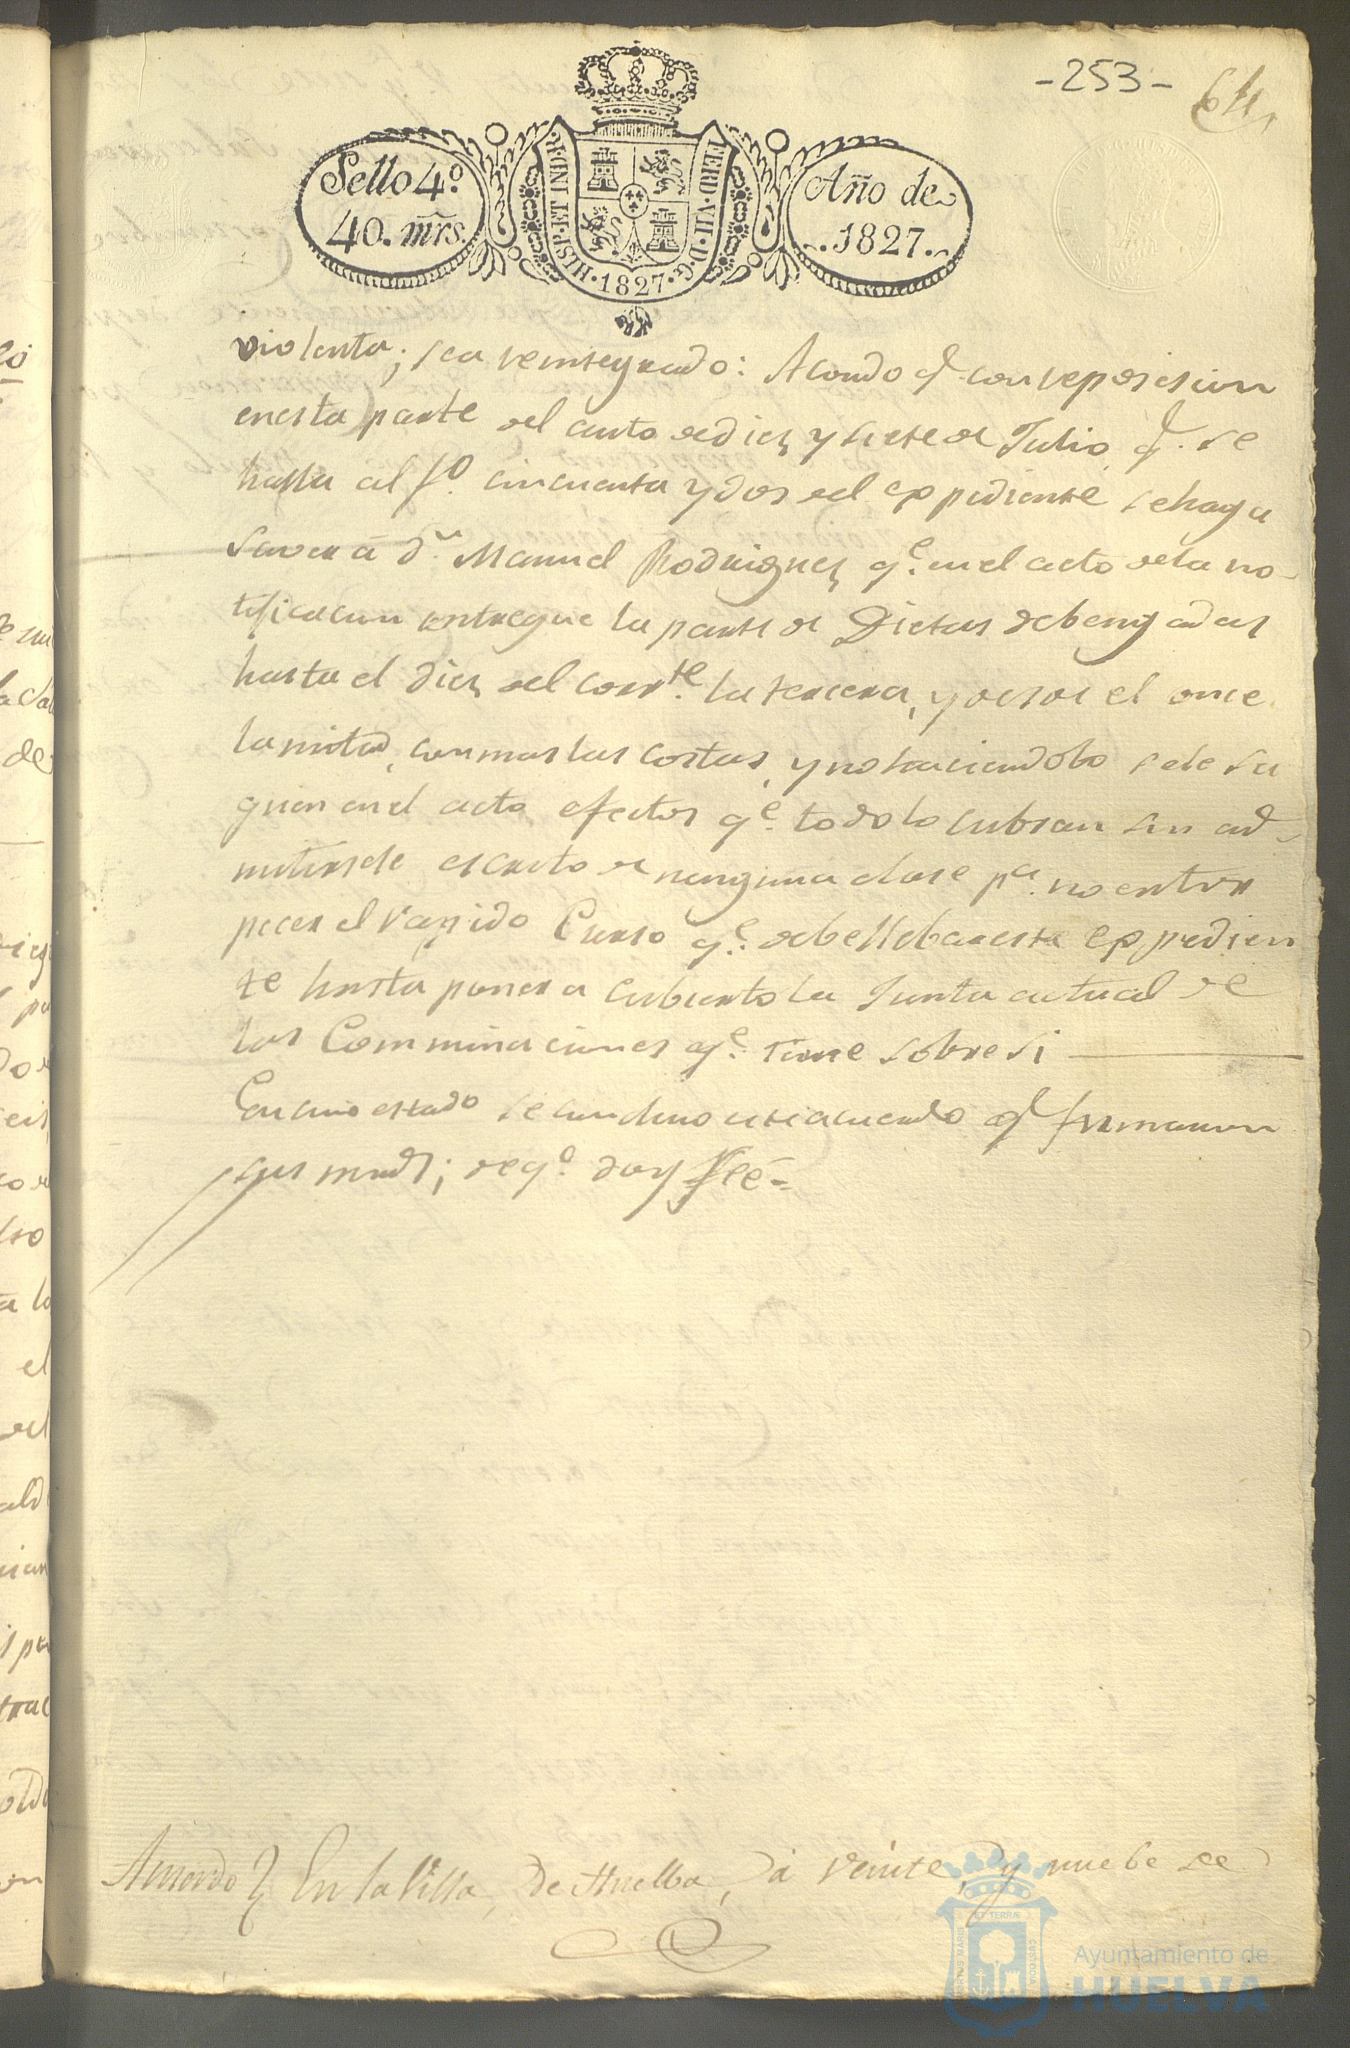 -253-
64.
Sello 4.º
40. mrs.
HISP. ET IND. R.
FERD. VII. D. G.
1827
Año de
1827.
violenta; sea reintegrado: Acordo q.e con reposicion
enesta parte del auto dediez y siete de Julio q.e se
halla al f.º cincuenta ydos del expediente sehaga
saver á d.n Manuel Rodriguez q.e en el acto dela no-
tificacion entregue la parte de Dietas debengadas
hasta el diez del corr.te la tercera, y desde el once
lamitad, con mas las costas, y nohaciendolo sele sa
quen enel acto efectos q.e todo lo cubran sin ad-
mitirsele escrito de ninguna clase p.a no entor
pecer el rapido Curso q.e debe llebar este expedien
te hasta poner a cubierto la Junta actual de
las Comminaciones q.e tiene sobre si
En cuio estado se concluio este acuerdo q.e firmaron
sus mrds; de q.e doy Feé=
Acuerdo En la Villa, de Huelba, á veinte, y nuebe de
PORTUS MARIS
ET TERRÆ
CUSTODIA
Ayuntamiento de
HUELVA